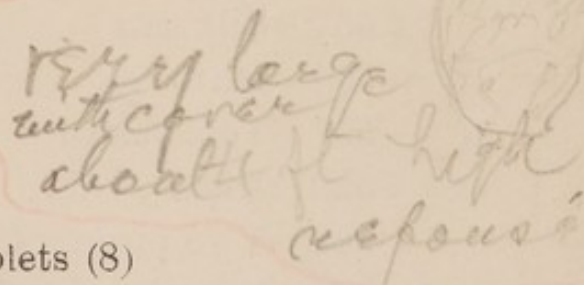 very large
with cover
about 1 ft high
repousé
lets (8)